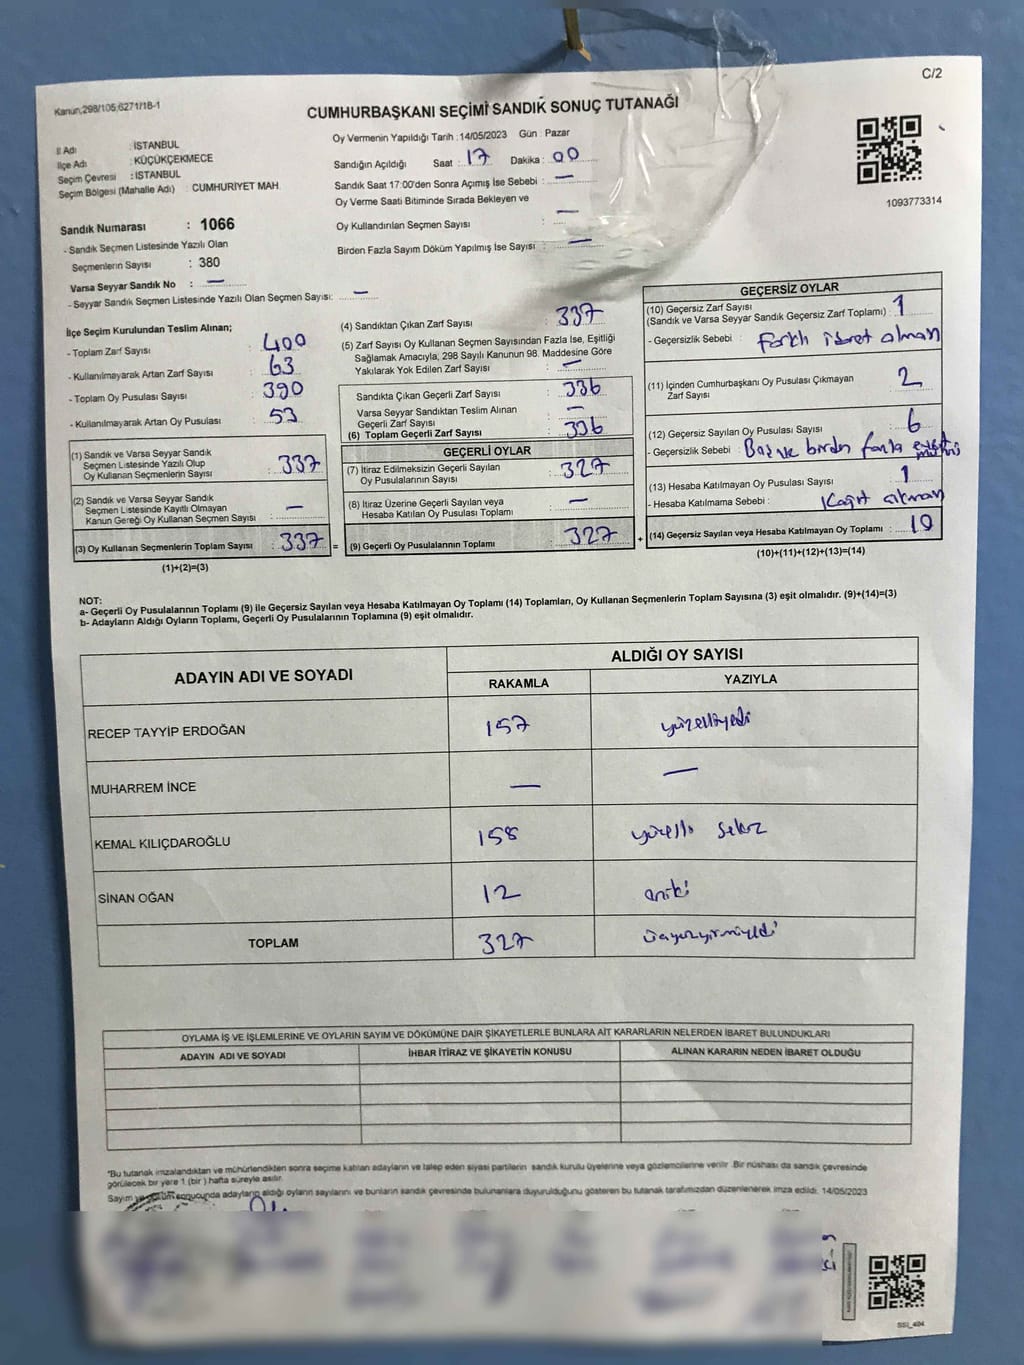 C/2
Kanun;298/105;6271/18-1
CUMHURBAŞKANI SEÇİMİ SANDIK SONUÇ TUTANAĞI
İl Adı : İSTANBUL
İlçe Adı : KÜÇÜKÇEKMECE
Seçim Çevresi : İSTANBUL
Seçim Bölgesi (Mahalle Adı) : CUMHURİYET MAH
Sandık Numarası : 1066
- Sandık Seçmen Listesinde Yazılı Olan
Seçmenlerin Sayısı : 380
Varsa Seyyar Sandık No : —
- Seyyar Sandık Seçmen Listesinde Yazılı Olan Seçmen Sayısı: —
Oy Vermenin Yapıldığı Tarih : 14/05/2023 Gün : Pazar
Sandığın Açıldığı Saat : 17 Dakika : 00
Sandık Saat 17:00'den Sonra Açımış İse Sebebi : —
Oy Verme Saati Bitiminde Sırada Bekleyen ve
Oy Kullandırılan Seçmen Sayısı : —
Birden Fazla Sayım Döküm Yapılmış İse Sayısı : —
1093773314
İlçe Seçim Kurulundan Teslim Alınan;
- Toplam Zarf Sayısı : 400
- Kullanılmayarak Artan Zarf Sayısı : 63
- Toplam Oy Pusulası Sayısı : 390
- Kullanılmayarak Artan Oy Pusulası : 53
(1) Sandık ve Varsa Seyyar Sandık
Seçmen Listesinde Yazılı Olup
Oy Kullanan Seçmenlerin Sayısı : 337
(2) Sandık ve Varsa Seyyar Sandık
Seçmen Listesinde Kayıtlı Olmayan
Kanun Gereği Oy Kullanan Seçmen Sayısı : —
(3) Oy Kullanan Seçmenlerin Toplam Sayısı : 337
(1)+(2)=(3)
(4) Sandıktan Çıkan Zarf Sayısı : 337
(5) Zarf Sayısı Oy Kullanan Seçmen Sayısından Fazla İse, Eşitliği
Sağlamak Amacıyla, 298 Sayılı Kanunun 98. Maddesine Göre
Yakılarak Yok Edilen Zarf Sayısı : —
Sandıkta Çıkan Geçerli Zarf Sayısı : 336
Varsa Seyyar Sandıktan Teslim Alınan
Geçerli Zarf Sayısı : —
(6) Toplam Geçerli Zarf Sayısı : 336
GEÇERLİ OYLAR
(7) İtiraz Edilmeksizin Geçerli Sayılan
Oy Pusulalarının Sayısı : 327
(8) İtiraz Üzerine Geçerli Sayılan veya
Hesaba Katılan Oy Pusulası Toplamı : —
= (9) Geçerli Oy Pusulalarının Toplamı : 327
GEÇERSİZ OYLAR
(10) Geçersiz Zarf Sayısı
(Sandık ve Varsa Seyyar Sandık Geçersiz Zarf Toplamı) : 1
- Geçersizlik Sebebi : farklı işaret olması
(11) İçinden Cumhurbaşkanı Oy Pusulası Çıkmayan
Zarf Sayısı : 2
(12) Geçersiz Sayılan Oy Pusulası Sayısı : 6
- Geçersizlik Sebebi : birden fazla evet mührü
(13) Hesaba Katılmayan Oy Pusulası Sayısı : 1
- Hesaba Katılmama Sebebi : Kağıt
+ (14) Geçersiz Sayılan veya Hesaba Katılmayan Oy Toplamı : 10
(10)+(11)+(12)+(13)=(14)
NOT:
a- Geçerli Oy Pusulalarının Toplamı (9) ile Geçersiz Sayılan veya Hesaba Katılmayan Oy Toplamı (14) Toplamları, Oy Kullanan Seçmenlerin Toplam Sayısına (3) eşit olmalıdır. (9)+(14)=(3)
b- Adayların Aldığı Oyların Toplamı, Geçerli Oy Pusulalarının Toplamına (9) eşit olmalıdır.
ADAYIN ADI VE SOYADI
ALDIĞI OY SAYISI
RAKAMLA YAZIYLA
RECEP TAYYİP ERDOĞAN 157 yüzelliyedi
MUHARREM İNCE — —
KEMAL KILIÇDAROĞLU 158 yüzelli sekiz
SİNAN OĞAN 12 oniki
TOPLAM 327 üçyüzyirmiyedi
OYLAMA İŞ VE İŞLEMLERİNE VE OYLARIN SAYIM VE DÖKÜMÜNE DAİR ŞİKAYETLERLE BUNLARA AİT KARARLARIN NELERDEN İBARET BULUNDUKLARI
ADAYIN ADI VE SOYADI İHBAR İTİRAZ VE ŞİKAYETİN KONUSU ALINAN KARARIN NEDEN İBARET OLDUĞU
"Bu tutanak imzalandıktan ve mühürlendikten sonra seçime katılan adayların ve talep eden siyasi partilerin sandık kurulu üyelerine veya gözlemcilerine verilir .Bir nüshası da sandık çevresinde
görülecek bir yere 1 (bir ) hafta süreyle asılır.
Sayım ve sonucunda adayların aldığı oyların sayılarını ve bunların sandık çevresinde bulunanlara duyurulduğunu gösteren bu tutanak tarafımızdan düzenlenerek imza edildi. 14/05/2023
SSI_404